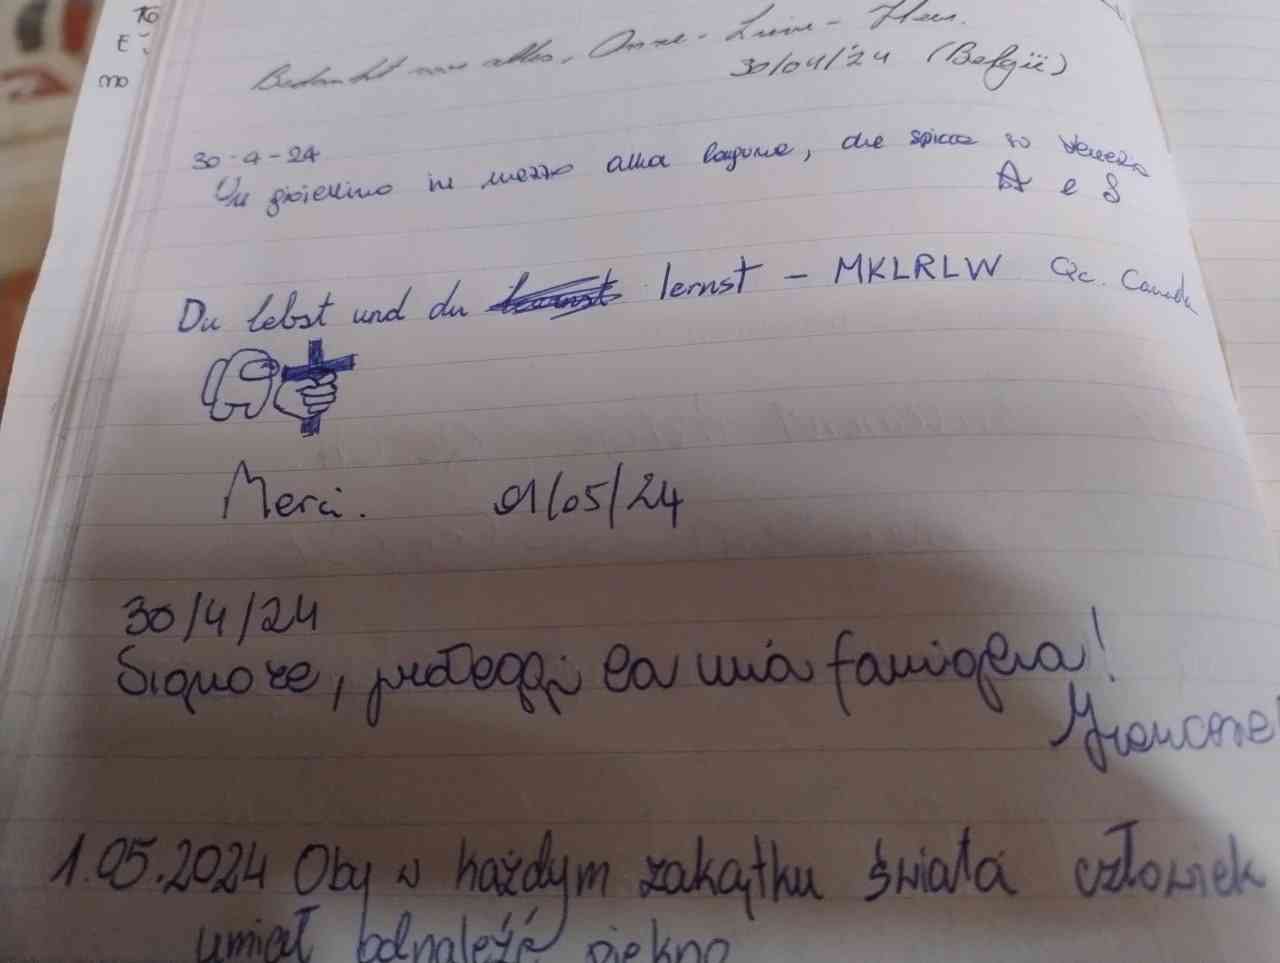 TO
E
mo
Bedankt voor alles, Anne-
30/04/24 (België)
30-4-24
Un gioiellino in mezzo alla laguna, che spicca su Venezia
A e S
Du lebst und du lernst - MKLRLW Qc. Canada
Merci. 01/05/24
30/4/24
Signore, proteggi la mia famiglia!
1.05.2024 Oby w każdym zakątku świata człowiek
umiał odnaleźć piękno